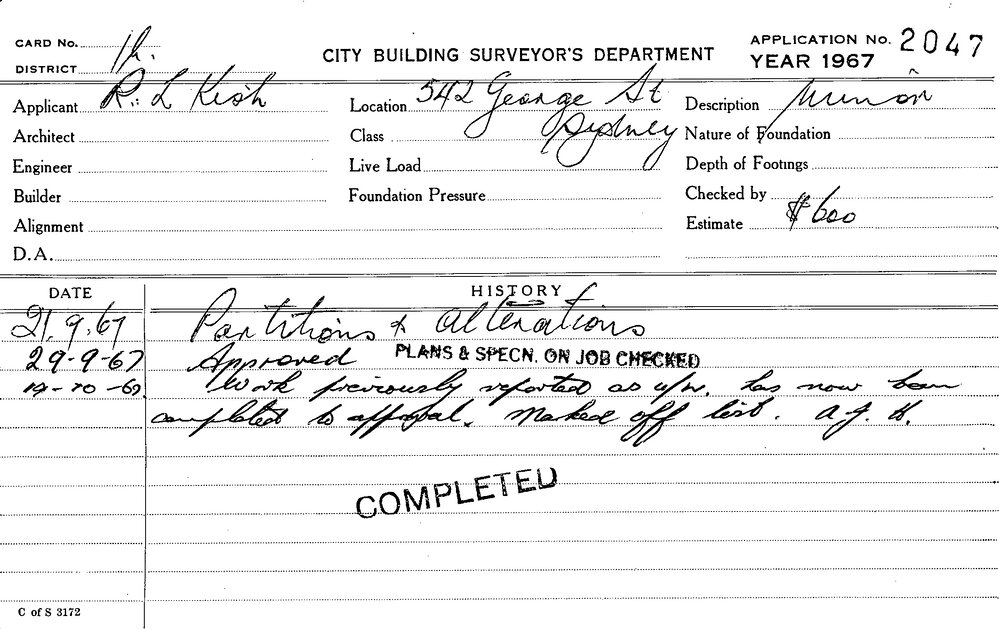 CARD No. 1h.
DISTRICT
CITY BUILDING SURVEYOR'S DEPARTMENT
APPLICATION No. 2047
YEAR 1967
Applicant R. L Kish
Location 542 George St
Sydney
Description Minor
Architect
Class
Nature of Foundation
Engineer
Live Load
Depth of Footings
Builder
Foundation Pressure
Checked by
Alignment
Estimate $600
D.A.
DATE
HISTORY
21.9.67 Partitions & alterations
29-9-67 Approved PLANS & SPECN. ON JOB CHECKED
Work previously reported as u/w. has now been
completed to approval. Marked off list. A. J. H.
COMPLETED
C of S 3172